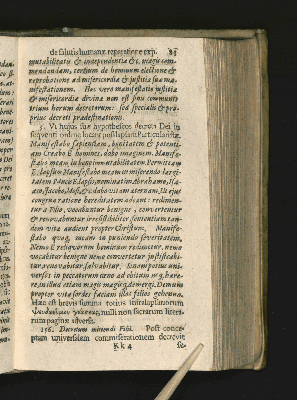 de salutis humanæ reparatione exp. 25
mutabilitatis & independentiæ & c. magis commendandam, tertium de hominum electione &
reprobatione ad misericordiæ & justitiæ suæ manifestationem. Hæc vero manifestatio justitiæ
& misericordiæ divinæ non est finis communis
trium horum decretorum: sed specialis & proprius decreti prædestinationis.
Vi hujus suæ hypotheseos decreta Dei in
sequenti ordine locant
Manifestabo sapientiam, bonitatem & potentiam Creabo E homines, dabo imaginem. Manifestabo meam immutabilitatem Permittam
E lapsum Manifestabo meam misericordiam largitatem Pauco E lapsis, nominatim Abrahamo, Isaaco Jacobo, Mosi, &c. dabo vitam æternam,
congrua ratione hereditatem adeant: redimentur a Filio, vocabuntur benigne, convertentur
& renovabuntur irresistibiliter sententiam tandem vitæ audient propter Christum. Manifestabo quoque meam in puniendo severitatem,
Nemo E reliquorum hominum redimetur, nemo
vocabitur benigne nemo convertetur justificabitur, renovabitur salvabitur.
in peccatorum cæno ad obitum
re, in illud etiam magis magisque mergi. Demum
propter vitæ sordes faciam illos filios gehennæ.
Hæc est brevis summa totius infralapsariorum
nulli non sacrarum literarum paginæ adversa.
156. Decretum mittendi Filii. Post conceptam universalem commiserationem decrevit
Kk 4 se-